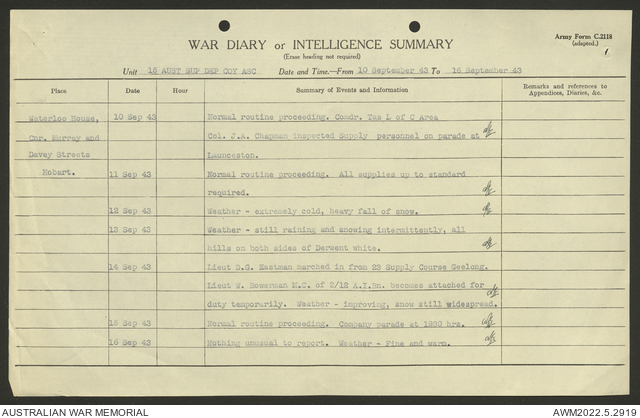 Army Form C.2118
(adapted.)
WAR DIARY or INTELLIGENCE SUMMARY
(Erase heading not required)
1
Unit 15 AUST SUP DEP COY ASC Date and Time.—From 10 September 43 To 16 September 43
Place Date Hour Summary of Events and Information Remarks and references to Appendices, Diaries, &c.
Waterloo House, 10 Sep 43 Normal routine proceeding. Comdr. Tas L of C Area
Cnr. Murray and Col. J.A. Chapman inspected Supply personnel on parade at
Davey Streets Launceston.
Hobart. 11 Sep 43 Normal routine proceeding. All supplies up to standard
required.
12 Sep 43 Weather - extremely cold, heavy fall of snow.
13 Sep 43 Weather - still raining and snowing intermittently, all
hills on both sides of Derwent white.
14 Sep 43 Lieut D.G. Eastman marched in from 23 Supply Course Geelong.
Lieut W. Bowerman M.C. of 2/12 A.I.Bn. becomes attached for
duty temporarily. Weather - improving, snow still widespread.
15 Sep 43 Normal routine proceeding. Company parade at 1930 hrs.
16 Sep 43 Nothing unusual to report. Weather - Fine and warm.
AUSTRALIAN WAR MEMORIAL AWM2022.5.2919